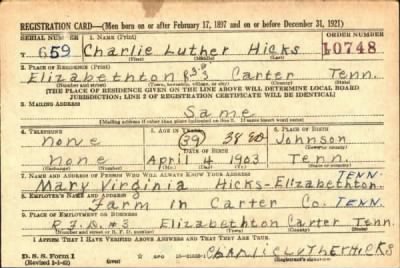 REGISTRATION CARD—(Men born on or after February 17, 1897 and on or before December 31, 1921)
SERIAL NUMBER 1. NAME (Print) ORDER NUMBER
T 659 Charlie Luther Hicks 10748
(First) (Middle) (Last)
2. PLACE OF RESIDENCE (Print)
Elizabethton Carter Tenn.
(Number and street) (Town, township, village, or city) (County) (State)
[THE PLACE OF RESIDENCE GIVEN ON THE LINE ABOVE WILL DETERMINE LOCAL BOARD
JURISDICTION; LINE 2 OF REGISTRATION CERTIFICATE WILL BE IDENTICAL]
3. MAILING ADDRESS
Same
[Mailing address if other than place indicated on line 2. If same insert word same]
4. TELEPHONE 5. AGE IN YEARS 6. PLACE OF BIRTH
none 39 38 Johnson
(Town or county)
none April 4 1903 Tenn.
(Exchange) (Number) (Mo.) (Day) (Yr.) (State or country)
7. NAME AND ADDRESS OF PERSON WHO WILL ALWAYS KNOW YOUR ADDRESS TENN.
Mary Virginia Hicks-Elizabethton
8. EMPLOYER'S NAME AND ADDRESS
Farm in Carter Co. TENN.
9. PLACE OF EMPLOYMENT OR BUSINESS
R.F.D. #3 Elizabethton Carter Tenn.
(Number and street or R. F. D. number) (Town) (County) (State)
I AFFIRM THAT I HAVE VERIFIED ABOVE ANSWERS AND THAT THEY ARE TRUE.
D. S. S. Form 1
GPO
CHARLIE LUTHER HICKS
(Registrant's signature)